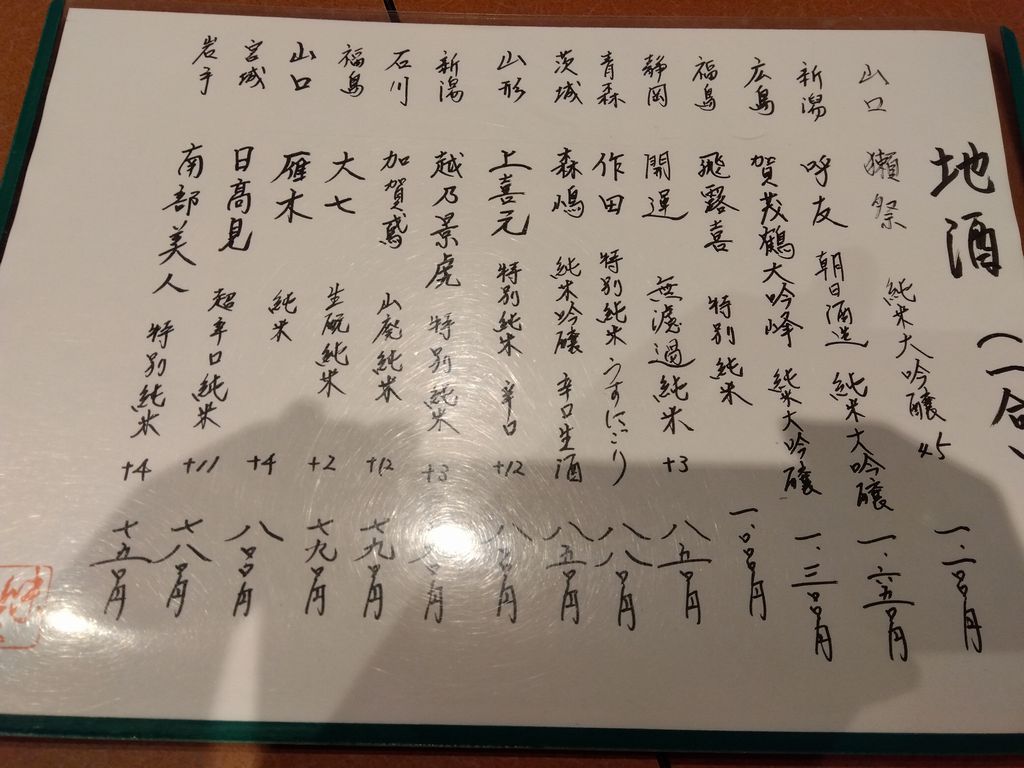 地酒（一合）
山口 獺祭 純米大吟醸 45 一、二〇〇円
新潟 呼友 朝日酒造 純米大吟醸 一、六五〇円
広島 賀茂鶴大吟峰 純米大吟醸 一、三〇〇円
福島 飛露喜 特別純米 一、〇〇〇円
静岡 開運 無濾過純米 +3 八五〇円
青森 作田 特別純米うすにごり 八八〇円
茨城 森嶋 純米吟醸 辛口生酒 八五〇円
山形 上喜元 特別純米 辛口 +12 八〇〇円
新潟 越乃景虎 特別純米 +3
石川 加賀鳶 山廃純米 +12 七九〇円
福島 大七 生酛純米 +2 七九〇円
山口 雁木 純米 +4 八〇〇円
宮城 日高見 超辛口純米 +11 七八〇円
岩手 南部美人 特別純米 +4 七五〇円